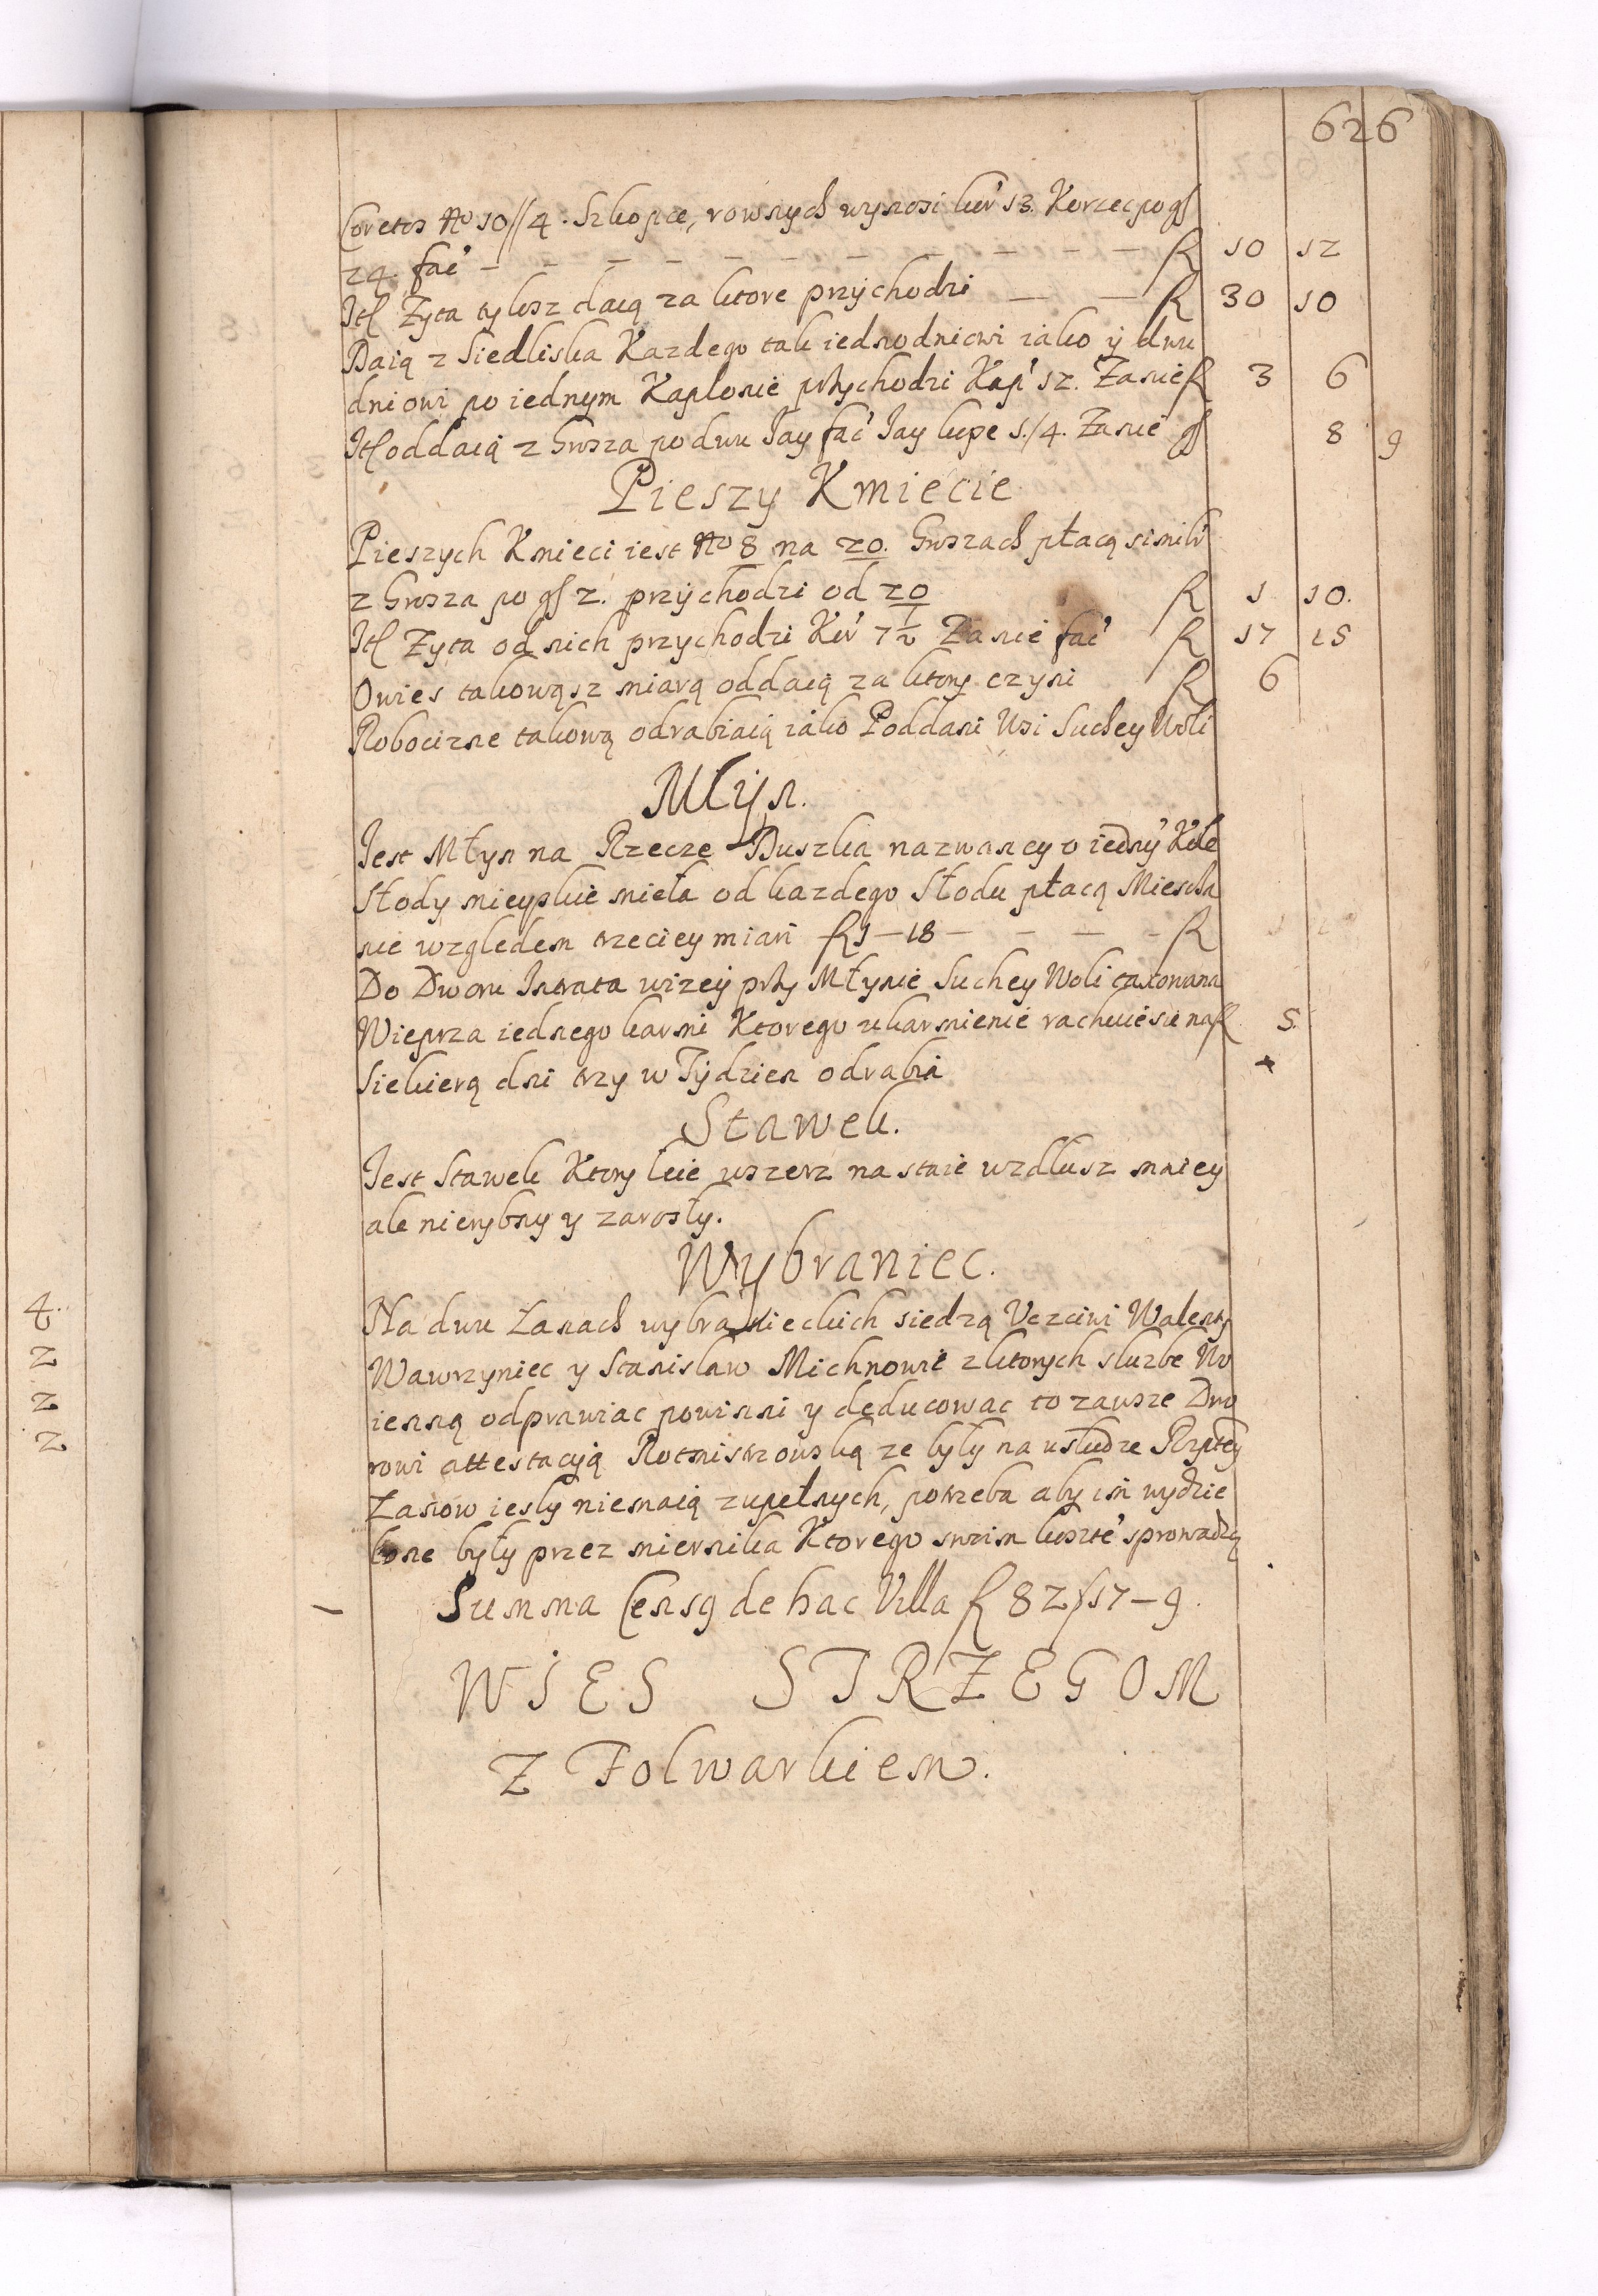 626
Coretos No 10//4. Szkopce, rownych wynosi kor 13. Korzec po gs
24. fać – – – – – – – – – – – – f 10 12
Itl Zyta tylosz daią za ktore przychodzi – – f 30 10
Daią z Siedliska Kazdego tak iednodniowi iako ÿ dwu
dniowi po iednym Kaplonie przychodzi Kap' 12. Zanie f 3 6
Itl oddaią z Grosza po dwu Jay fać Jay kupe 1./4. Zanie gs 8 9
Pieszy Kmiecie
Pieszych Kmieci iest No 8 na 20. Groszach płacą similr
z Grosza po gs 2. przychodzi od 20 f 1 10.
Itl Zyta od nich przychodzi Kor 7 1/2 Zanie fać f 17 15
Owies takowąsz miarą oddaią za ktory czyni f 6
Robocizne takową odrabiaią iako Poddani Wsi Suchey Woli
Młÿn.
Jest Młyn na Rzecze Duszka nazwaney o iednÿ Kole
Słody mieyskie miela od kazdego Słodu płacą Miescza
nie wzgledem trzeciey miari f 1 – 18 – – – – f
Do Dworu Intrata wizey przy Młynie Suchey Woli taxowana
Wieprza iednego karmi Ktorego ukarmienie rachuie sie na f 5.
Siekierą dni trzy w Tÿdzien odrabia
Stawek.
Jest Stawek Ktory leie wszerz na staie wzdłusz mniey
ale nierybny y zarosły.
Wybraniec.
Na dwu Łanach wybranieckich siedzą Uczciwi Walenty
Wawrzyniec y Stanislaw Michnowie z ktorych sluzbe Wo
ienną odprawiac powinni y deducowac to zawsze Dwo
rowi attestacyią Rotmistrzowską ze były na usłudze Rzptey
Łanow iesly niemaią zupełnych, potrzeba aby im wydzie
lone były przez miernika Ktorego swoim kosztē sprowadzą
Summa Censq de hac Villa f 82/17 – 9.
WIES STRZEGOM
Z Folwarkiem.
4.
2
2
2